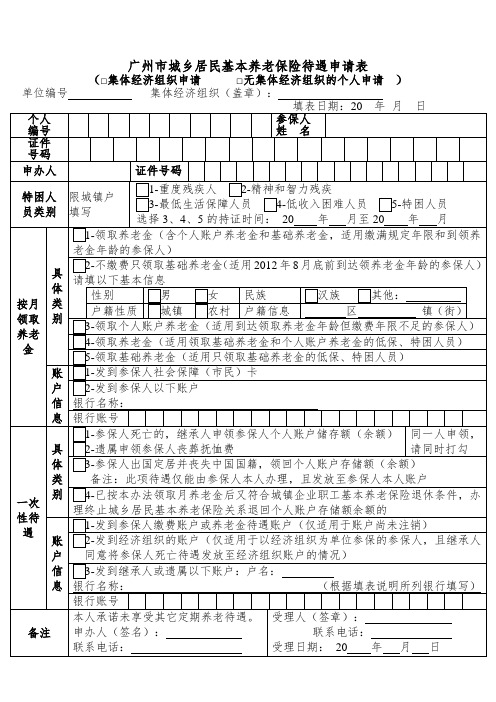 广州市城乡居民基本养老保险待遇申请表
（□集体经济组织申请 □无集体经济组织的个人申请 ）
单位编号 集体经济组织（盖章）：
填表日期：20 年 月 日
个人编号 参保人姓 名
证件号码
申办人 证件号码
特困人员类别 限城镇户填写
□1-重度残疾人 □2-精神和智力残疾
□3-最低生活保障人员 □4-低收入困难人员 □5-特困人员
选择 3、4、5 的持证时间： 20 年 月至 20 年 月
按月领取养老金
具体类别
□1-领取养老金（含个人账户养老金和基础养老金，适用缴满规定年限和到领养
老金年龄的参保人）
□2-不缴费只领取基础养老金（适用 2012 年 8 月底前到达领养老金年龄的参保人）
请填以下基本信息
性别 □男 □女 民族 □汉族 □其他：
户籍性质 □城镇 □农村 户籍信息 区 镇（街）
□3-领取个人账户养老金（适用到达领取养老金年龄但缴费年限不足的参保人）
□4-领取养老金（适用领取基础养老金和个人账户养老金的低保、特困人员）
□5-领取基础养老金（适用只领取基础养老金的低保、特困人员）
账户信息
□1-发到参保人社会保障（市民）卡
□2-发到参保人以下账户
银行名称：
银行账号
一次性待遇
具体类别
□1-参保人死亡的，继承人申领参保人个人账户储存额（余额）
□2-遗属申领参保人丧葬抚恤费
同一人申领，
请同时打勾
□3-参保人出国定居并丧失中国国籍，领回个人账户存储额（余额）
备注：此项待遇仅能由参保人本人办理，且发放至参保人本人账户
□4-已按本办法领取月养老金后又符合城镇企业职工基本养老保险退休条件，办
理终止城乡居民基本养老保险关系退回个人账户存储额余额的
账户信息
□1-发到参保人缴费账户或养老金待遇账户（仅适用于账户尚未注销）
□2-发到经济组织的账户（仅适用于以经济组织为单位参保的参保人，且继承人
同意将参保人死亡待遇发放至经济组织账户的情况）
□3-发到继承人或遗属以下账户：户名：
银行名称： （根据填表说明所列银行填写）
银行账号
备注
本人承诺未享受其它定期养老待遇。
申办人（签名）：
联系电话：
受理人（签章）：
联系电话：
受理日期： 20 年 月 日